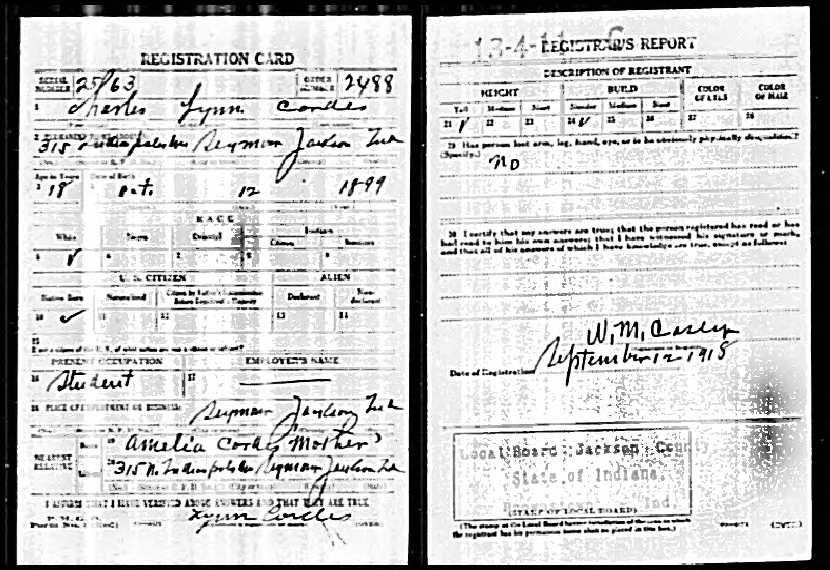 REGISTRATION CARD
SERIAL NUMBER 2563 ORDER NUMBER 2488
1 Charles Lynn Cordes
315 Indianapolis Ave Seymour Jackson Ind
Age in Years Date of Birth
18 Oct. 12 1899
RACE
White Negro Oriental Indian
Citizen
U. S. CITIZEN ALIEN
Native Born Naturalized Declarant Non-declarant
10 11 12 13 14
15
PRESENT OCCUPATION EMPLOYER'S NAME
16 Student 17
18 PLACE OF EMPLOYMENT OR BUSINESS:
Seymour Jackson Ind
NEAREST RELATIVE
Name 19 Amelia Cordes (Mother)
20 315 N. Indianapolis Ave Seymour Jackson Ind
I AFFIRM THAT I HAVE VERIFIED ABOVE ANSWERS AND THAT THEY ARE TRUE
Lynn Cordes
13-4-11 C
REGISTRAR'S REPORT
DESCRIPTION OF REGISTRANT
HEIGHT BUILD COLOR OF EYES COLOR OF HAIR
Tall Medium Short Slender Medium Stout
21 22 23 24 25 26 27 28
29 Has person lost arm, leg, hand, eye, or is he obviously physically disqualified?
(Specify.) No
30 I certify that my answers are true; that the person registered has read or has
had read to him his own answers; that I have witnessed his signature or mark,
and that all of his answers of which I have knowledge are true, except as follows:
Date of Registration September 12 1918
Local Board Jackson County
State of Indiana.
Ind.
(STAMP OF LOCAL BOARD)
(The stamp of the Local Board having jurisdiction of the area in which
the registrant has his permanent home shall be placed in this box.)